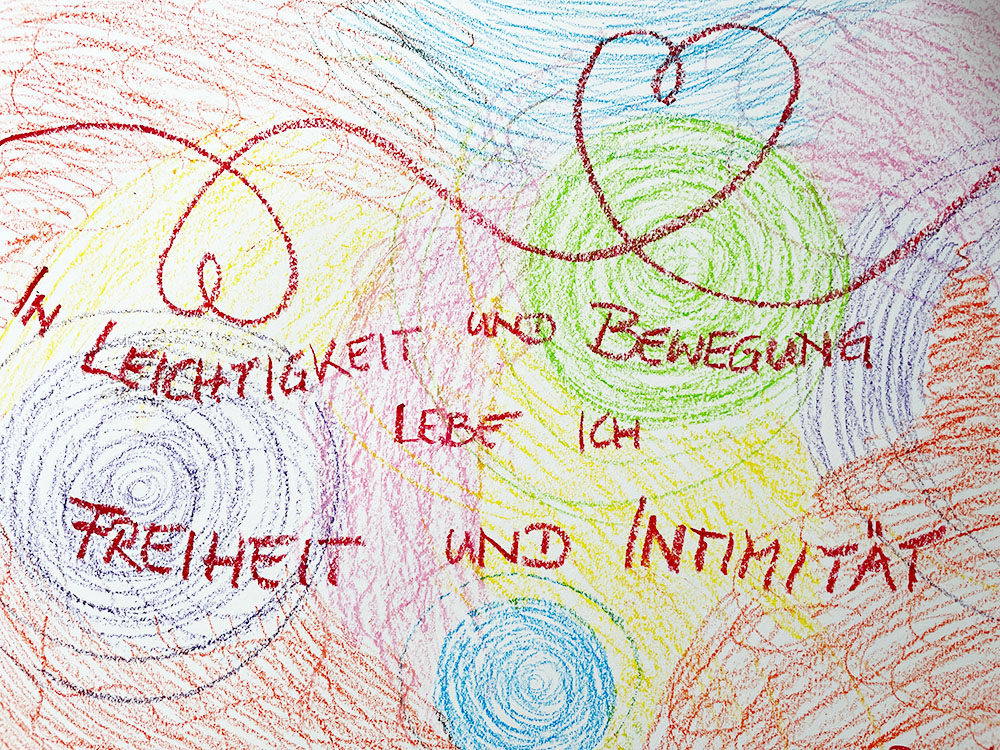 IN LEICHTIGKEIT UND BEWEGUNG
LEBE ICH
FREIHEIT UND INTIMITÄT